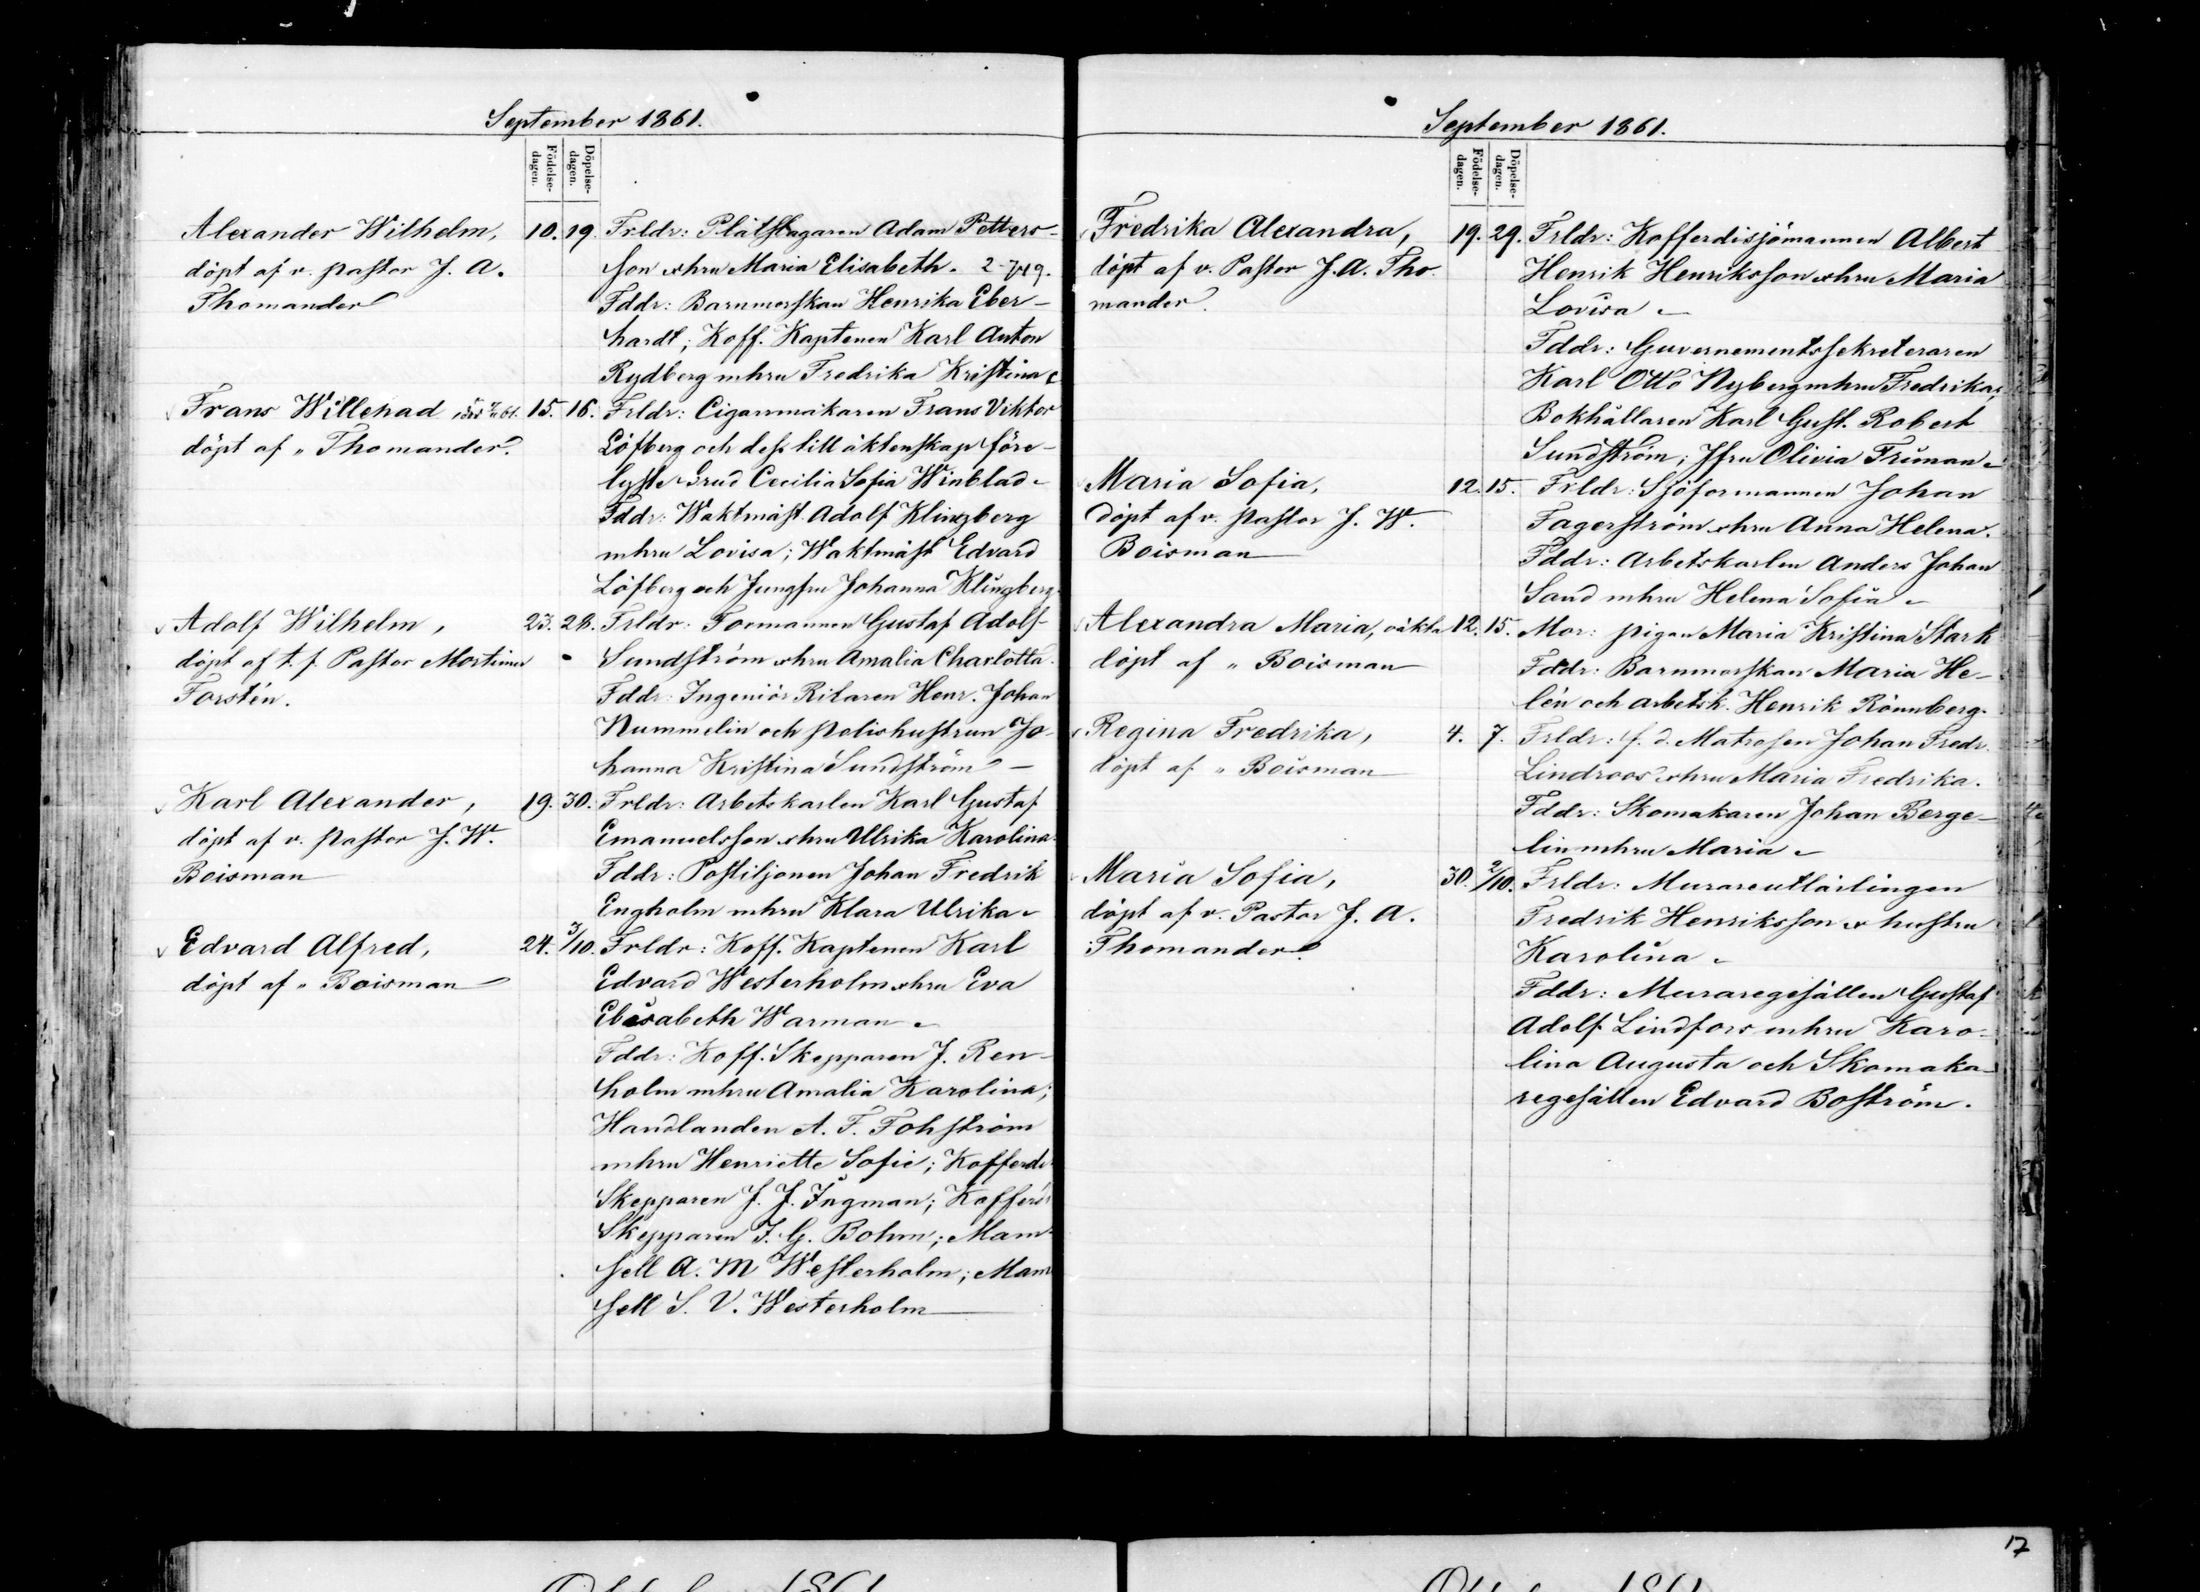 September 1861.
Födelse-
dagen.
Döpelse-
dagen.
Alexander Wilhelm,
döpt af v. pastor J. A.
Thomander
10. 19.
Frldr: Plåtslagaren Adam Petters-
son o hru Maria Elisabeth.
Fddr: Barnmorskan Henrika Eber-
hardt; Koff. Kaptenen Karl Anton
Rydberg mhru Fredrika Kristina
Frans Willehad
döpt af „ Thomander.
15. 16.
Frldr: Cigarrmakaren Frans Viktor
Löfberg och dess till äktenskap före-
lyste Brud Cecilia Sofia Winblad
Fddr: Waktmäst. Adolf Klingberg
mhru Lovisa; Waktmäst Edvard
Löfberg och Jungfru Johanna Klingberg
Adolf Wilhelm,
döpt af t. f. Pastor Mortimer
Forstén.
23. 28.
Frldr: Formannen Gustaf Adolf
Sundström o hru Amalia Charlotta.
Fddr: Ingeniör Ritaren Henr. Johan
Nummelin och polishustrun Jo-
hanna Kristina Sundström
Karl Alexander,
döpt af v. pastor J. W.
Boisman
19. 30.
Frldr: Arbetskarlen Karl Gustaf
Emanuelsson o hru Ulrika Karolina.
Fddr: Postiljonen Johan Fredrik
Engholm mhru Klara Ulrika
Edvard Alfred,
döpt af „ Boisman
24. 3/10.
Frldr: Koff. Kaptenen Karl
Edvard Westerholm o hru Eva
Elisabeth Warman
Fddr: Koff. Skepparen J. Ren-
holm mhru Amalia Karolina;
Handlanden A. F. Fohström
mhru Henriette Sofie; Kofferdi
Skepparen J. J. Ingman; Kofferdi
Skepparen F. G. Bohm; Mam-
sell A. M Westerholm; Mam
sell S. V. Westerholm
September 1861.
Födelse-
dagen.
Döpelse-
dagen.
Fredrika Alexandra,
döpt af v. Pastor J. A. Tho
mander.
19. 29.
Frldr: Kofferdisjömannen Albert
Henrik Henriksson o hru Maria
Lovisa
Fddr: Guvernementssekreteraren
Karl Otto Nyberg mhru Fredrika;
Bokhållaren Karl Gust. Robert
Sundström; Jfru Olivia Truman
Maria Sofia,
döpt af v. pastor J. W.
Boisman
12. 15.
Frldr: Sjöformannen Johan
Fagerström o hru Anna Helena.
Fddr: Arbetskarlen Anders Johan
Sand mhru Helena Sofia
Alexandra Maria, oäkta
döpt af „ Boisman
12. 15.
Mor: pigan Maria Kristina Stark
Fddr: Barnmorskan Maria He-
lén och arbetsk. Henrik Rönnberg.
Regina Fredrika,
döpt af „ Boisman
4. 7.
Frldr: f. d. Matrosen Johan Fredr.
Lindroos o hru Maria Fredrika.
Fddr: Skomakaren Johan Berge-
lin mhru Maria
Maria Sofia,
döpt af v. Pastor J. A.
Thomander.
30. 2/10.
Frldr: Murareutlärlingen
Fredrik Henriksson o hustru
Karolina
Fddr: Muraregesällen Gustaf
Adolf Lindfors mhru Karo-
lina Augusta och Skomaka-
regesällen Edvard Boström.
17